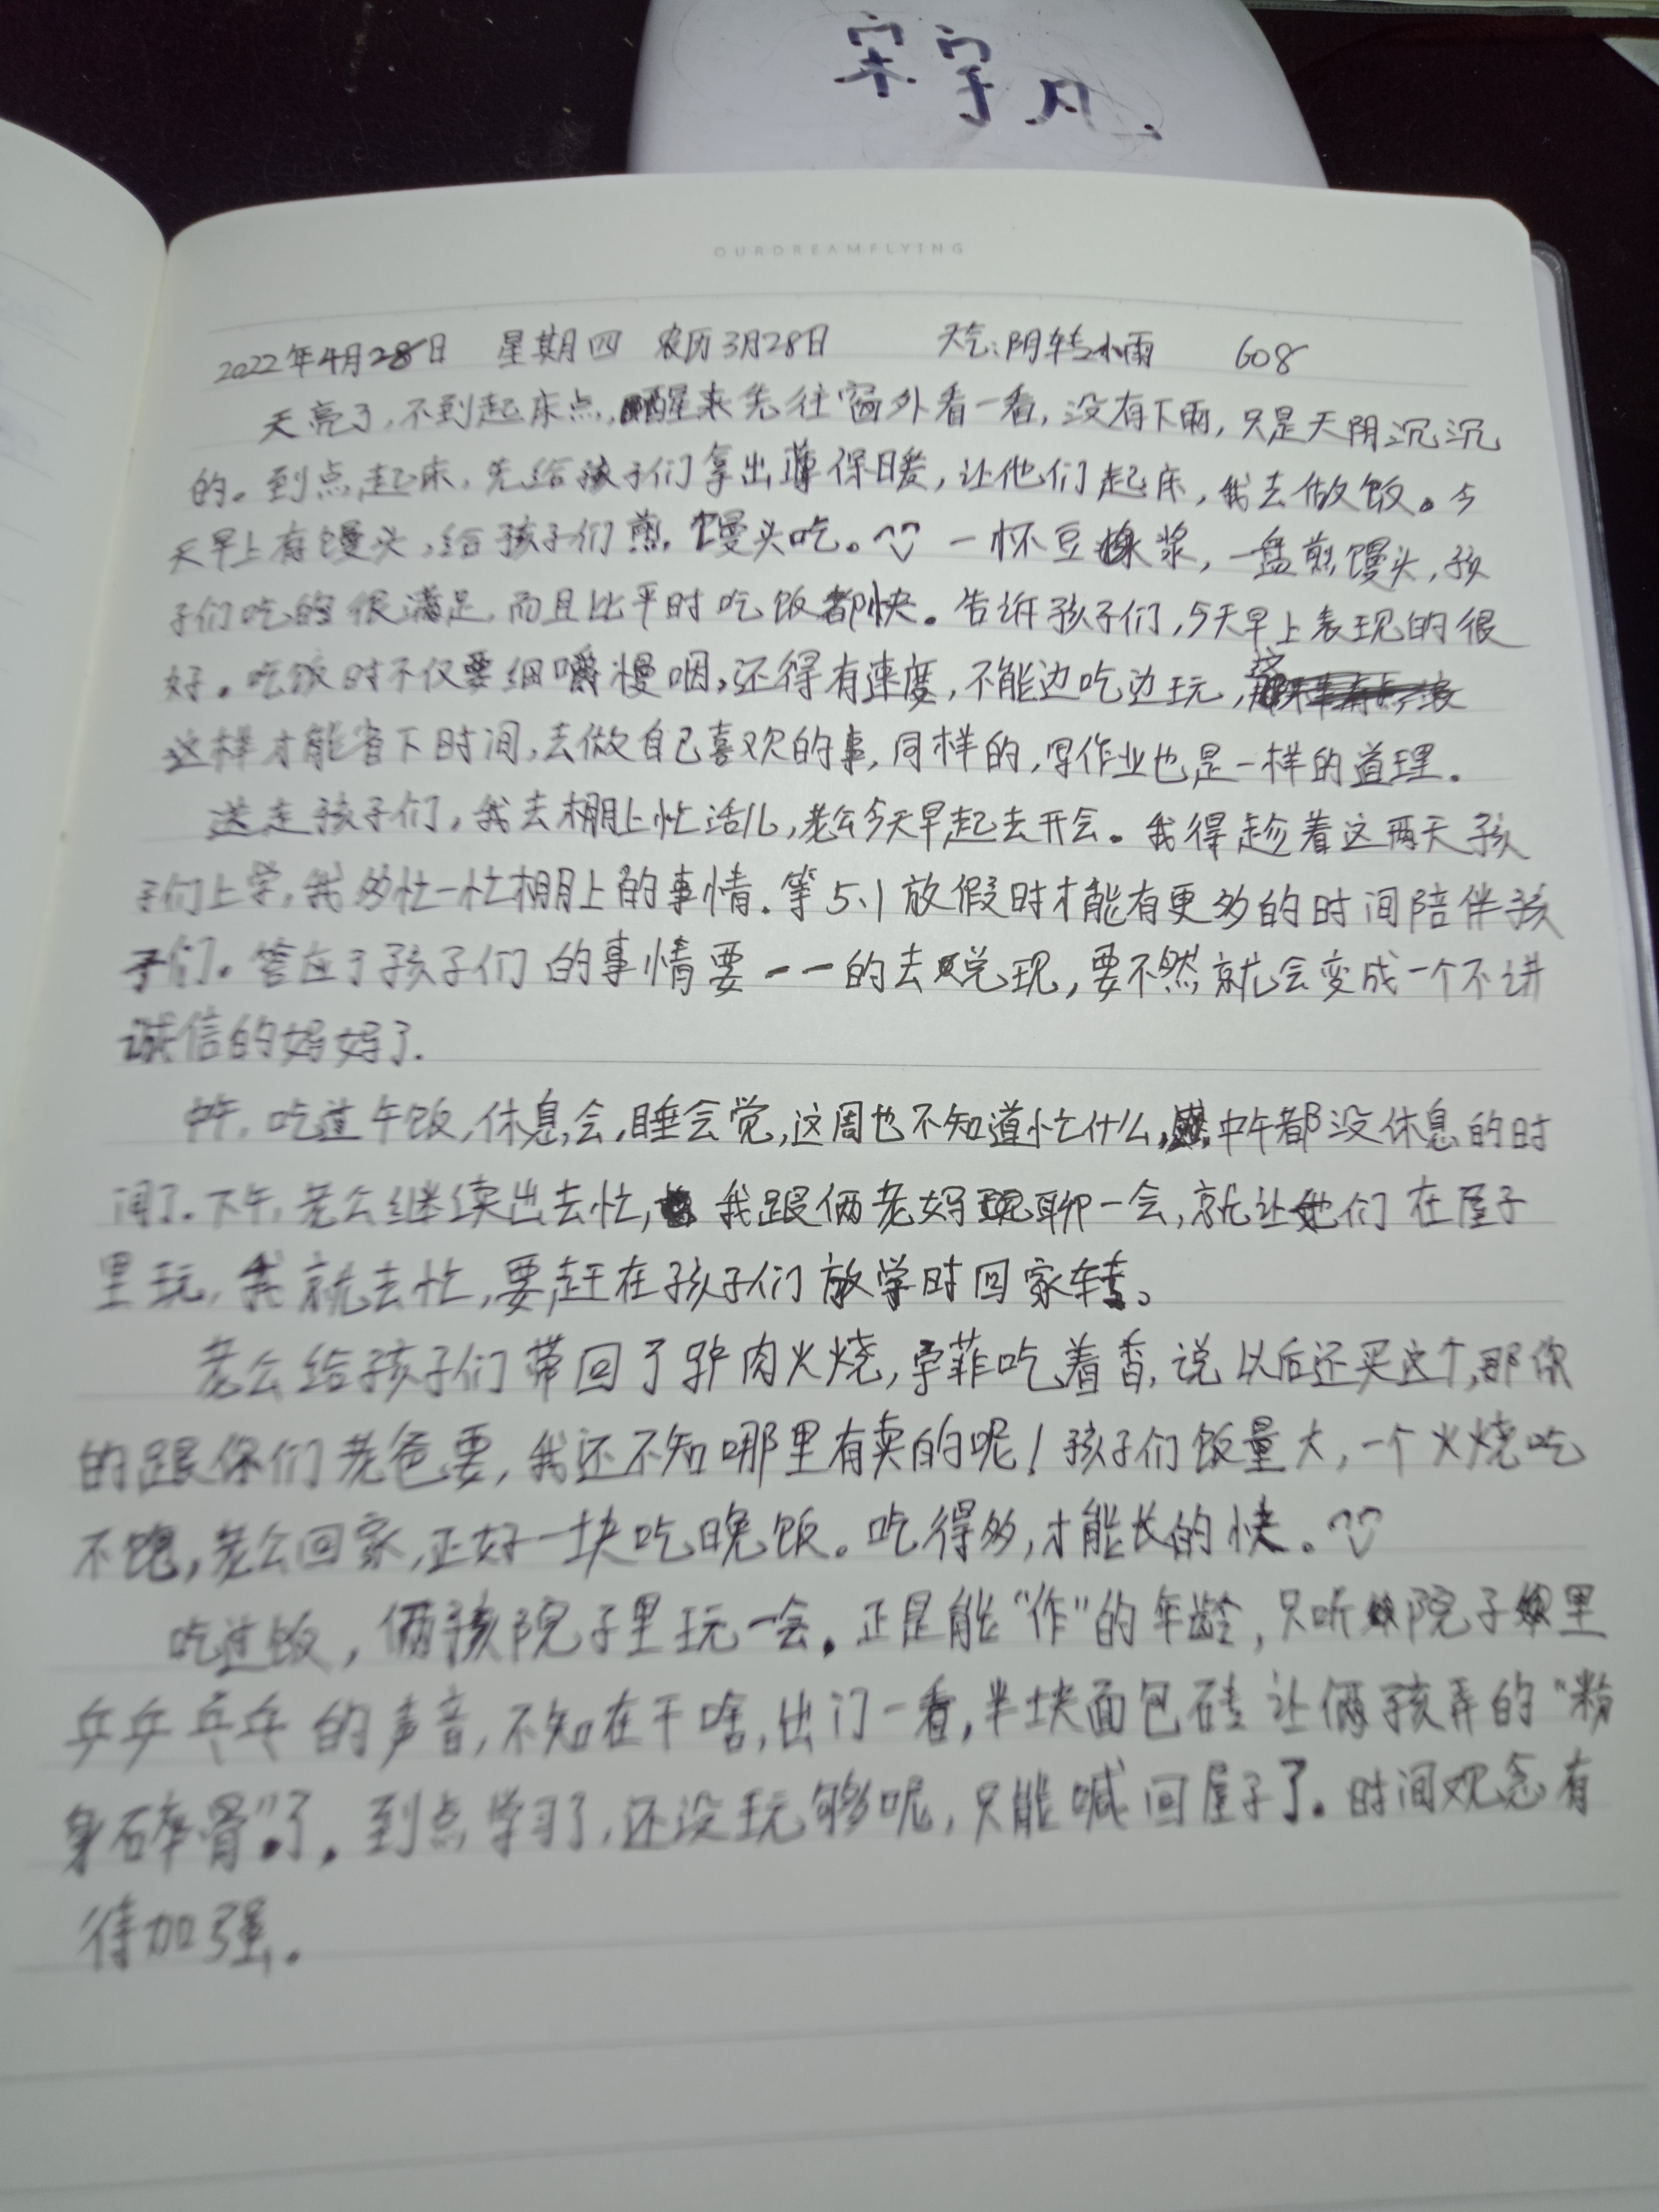 宋宇凡.
OURDREAMFLYING
2022年4月28日 星期四 农历3月28日 天气:阴转小雨 608
天亮了,不到起床点,醒来先往窗外看一看,没有下雨,只是天阴沉沉
的。到点起床,先给孩子们拿出薄保暖,让他们起床,我去做饭。今
天早上有馒头,给孩子们煎馒头吃。一杯豆浆,一盘煎馒头,孩
子们吃的很满足,而且比平时吃饭都快。告诉孩子们,今天早上表现的很
好。吃饭时不仅要细嚼慢咽,还得有速度,不能边吃边玩,
这样才能省下时间,去做自己喜欢的事,同样的,写作业也是一样的道理。
送走孩子们,我去棚上忙活儿,老公今天早起去开会。我得趁着这两天孩
子们上学,我多忙一忙棚上的事情.等5、1放假时才能有更多的时间陪伴孩
子们。答应了孩子们的事情要一一的去兑现,要不然就会变成一个不讲
诚信的妈妈了.
中午,吃过午饭,休息会,睡会觉,这周也不知道忙什么,中午都没休息的时
间了.下午,老公继续出去忙,我跟俩老妈聊一会,就让她们在屋子
里玩,我就去忙,要赶在孩子们放学时回家转。
老公给孩子们带回了驴肉火烧,宇菲吃着香,说以后还买这个,那你
的跟你们老爸要,我还不知哪里有卖的呢!孩子们饭量大,一个火烧吃
不饱,老公回家,正好一块吃晚饭。吃得多,才能长的快。
吃过饭,俩孩院子里玩一会.正是能"作"的年龄,只听院子里
乒乒乓乓的声音,不知在干啥,出门一看,半块面包砖让俩孩弄的"粉
身碎骨"了.到点学习了,还没玩够呢,只能喊回屋子了.时间观念有
待加强.